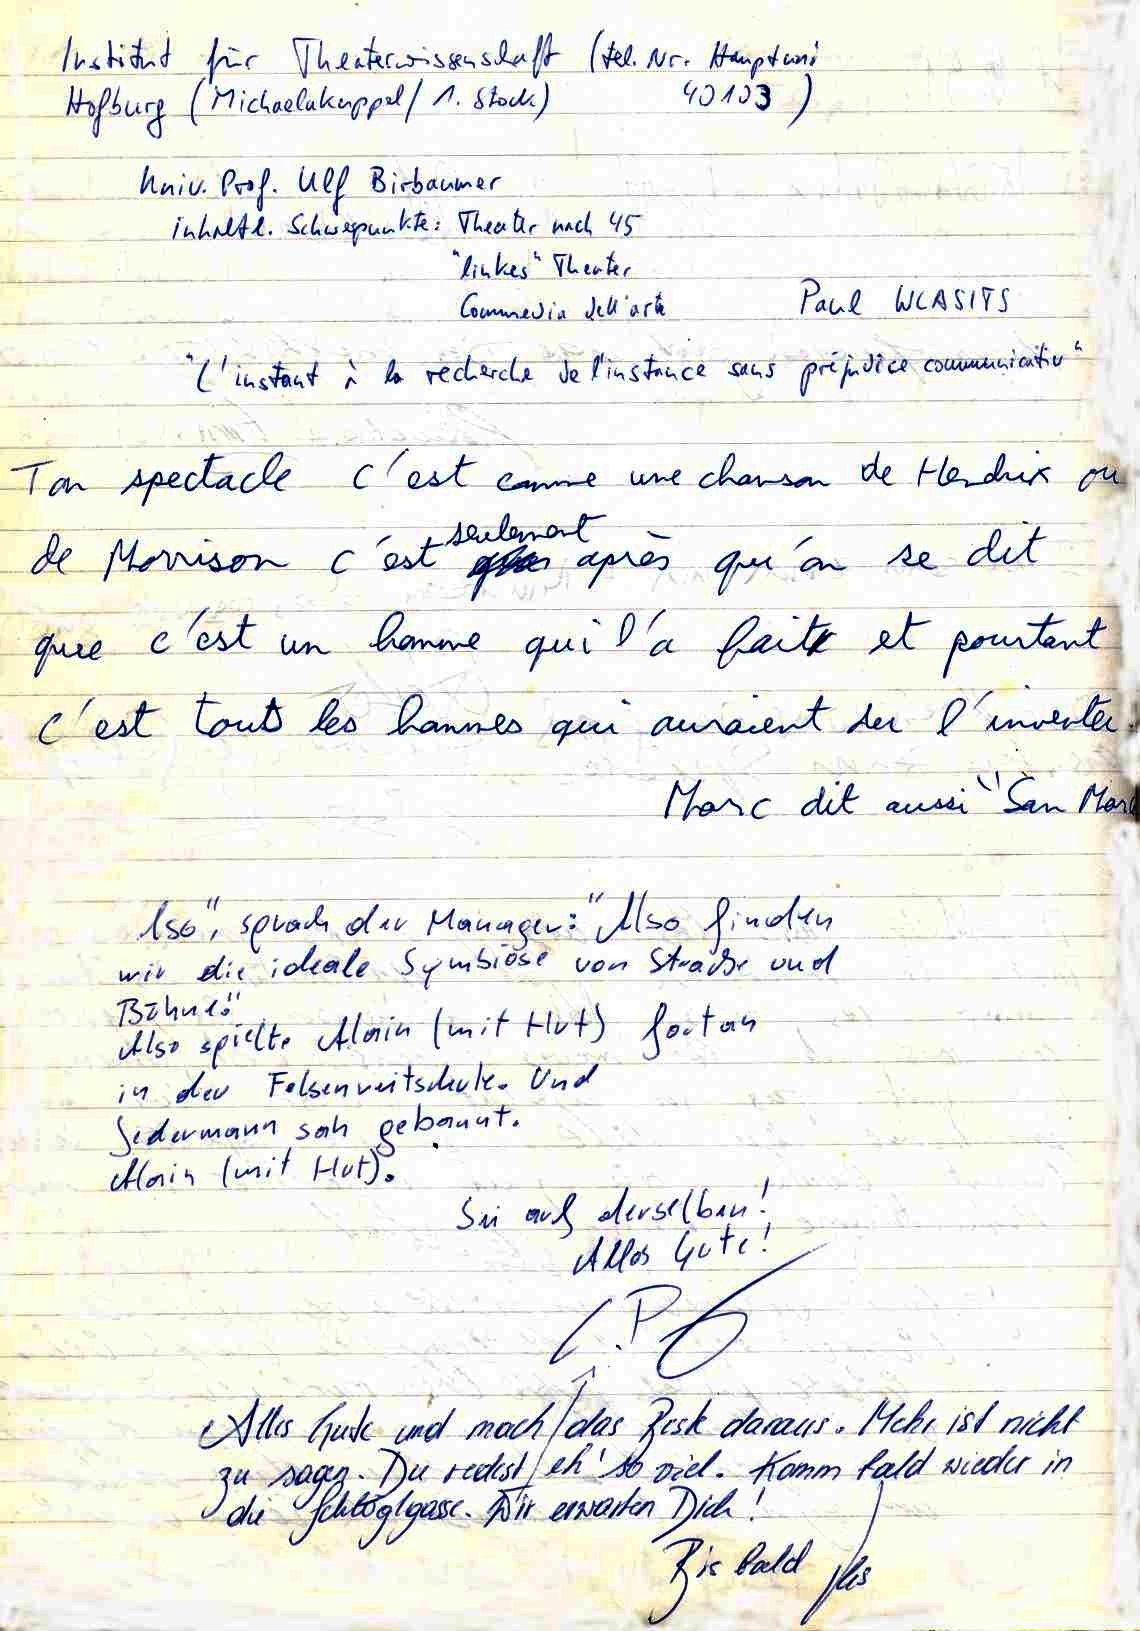 Institut für Theaterwissenschaft (tel. Nr. Hauptuni
Hofburg (Michaelakuppel/ 1. Stock) 40103 )
Univ. Prof. Ulf Birbaumer
inhaltl. Schwepunkte: Theater nach 45
"linkes" Theater
Commedia dell'arte
Paul WLASITS
"L'instant à la recherche de l'instance sans préjudice communicativ"
Ton spectacle c'est comme une chanson de Hendrix ou
de Morrison c'est seulement après qu'on se dit
que c'est un homme qui l'a fait et pourtant
c'est tous les hommes qui auraient du l'inventer.
Marc dit aussi "San Marc
"Also", sprach der Manager: "Also finden
wir die ideale Symbiose von Straße und
Bühne."
Also spielte Alain (mit Hut) fortan
in der Felsenreitschule. Und
Jedermann sah gebannt.
Alain (mit Hut).
Sei auf derselben!
Alles Gute!
Alles Gute und mach das Beste daraus. Mehr ist nicht
zu sagen. Du redest eh' so viel. Komm bald wieder in
die Schlöglgasse. Wir erwarten Dich!
Bis bald